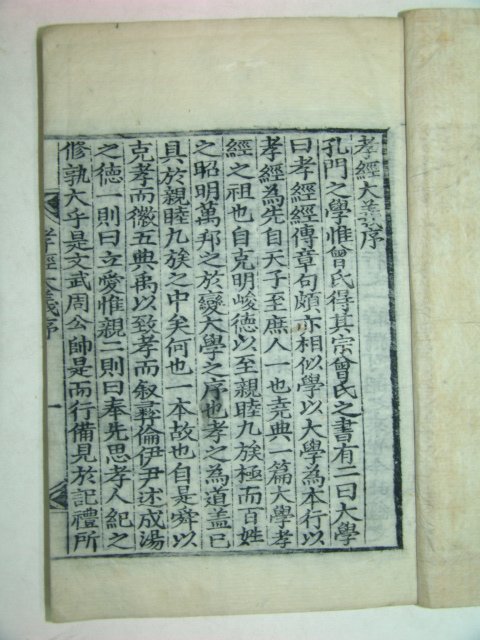 孝經大義序
孔門之學惟曾氏得其宗曾氏之書有二曰大學
曰孝經經傳章句頗亦相似學以大學為本行以
孝經為先自天子至庶人一也堯典一篇大學孝
經之祖也自克明峻德以至親睦九族極而百姓
之昭明萬邦之於變大學之序也孝之為道盖已
具於親睦九族之中矣何也一本故也自是舜以
克孝而徽五典禹以致孝而叙彛倫伊尹述成湯
之德一則曰立愛惟親二則曰奉先思孝人紀之
修孰大乎是文武周公帥是而行備見於記禮所
孝經大義序
一